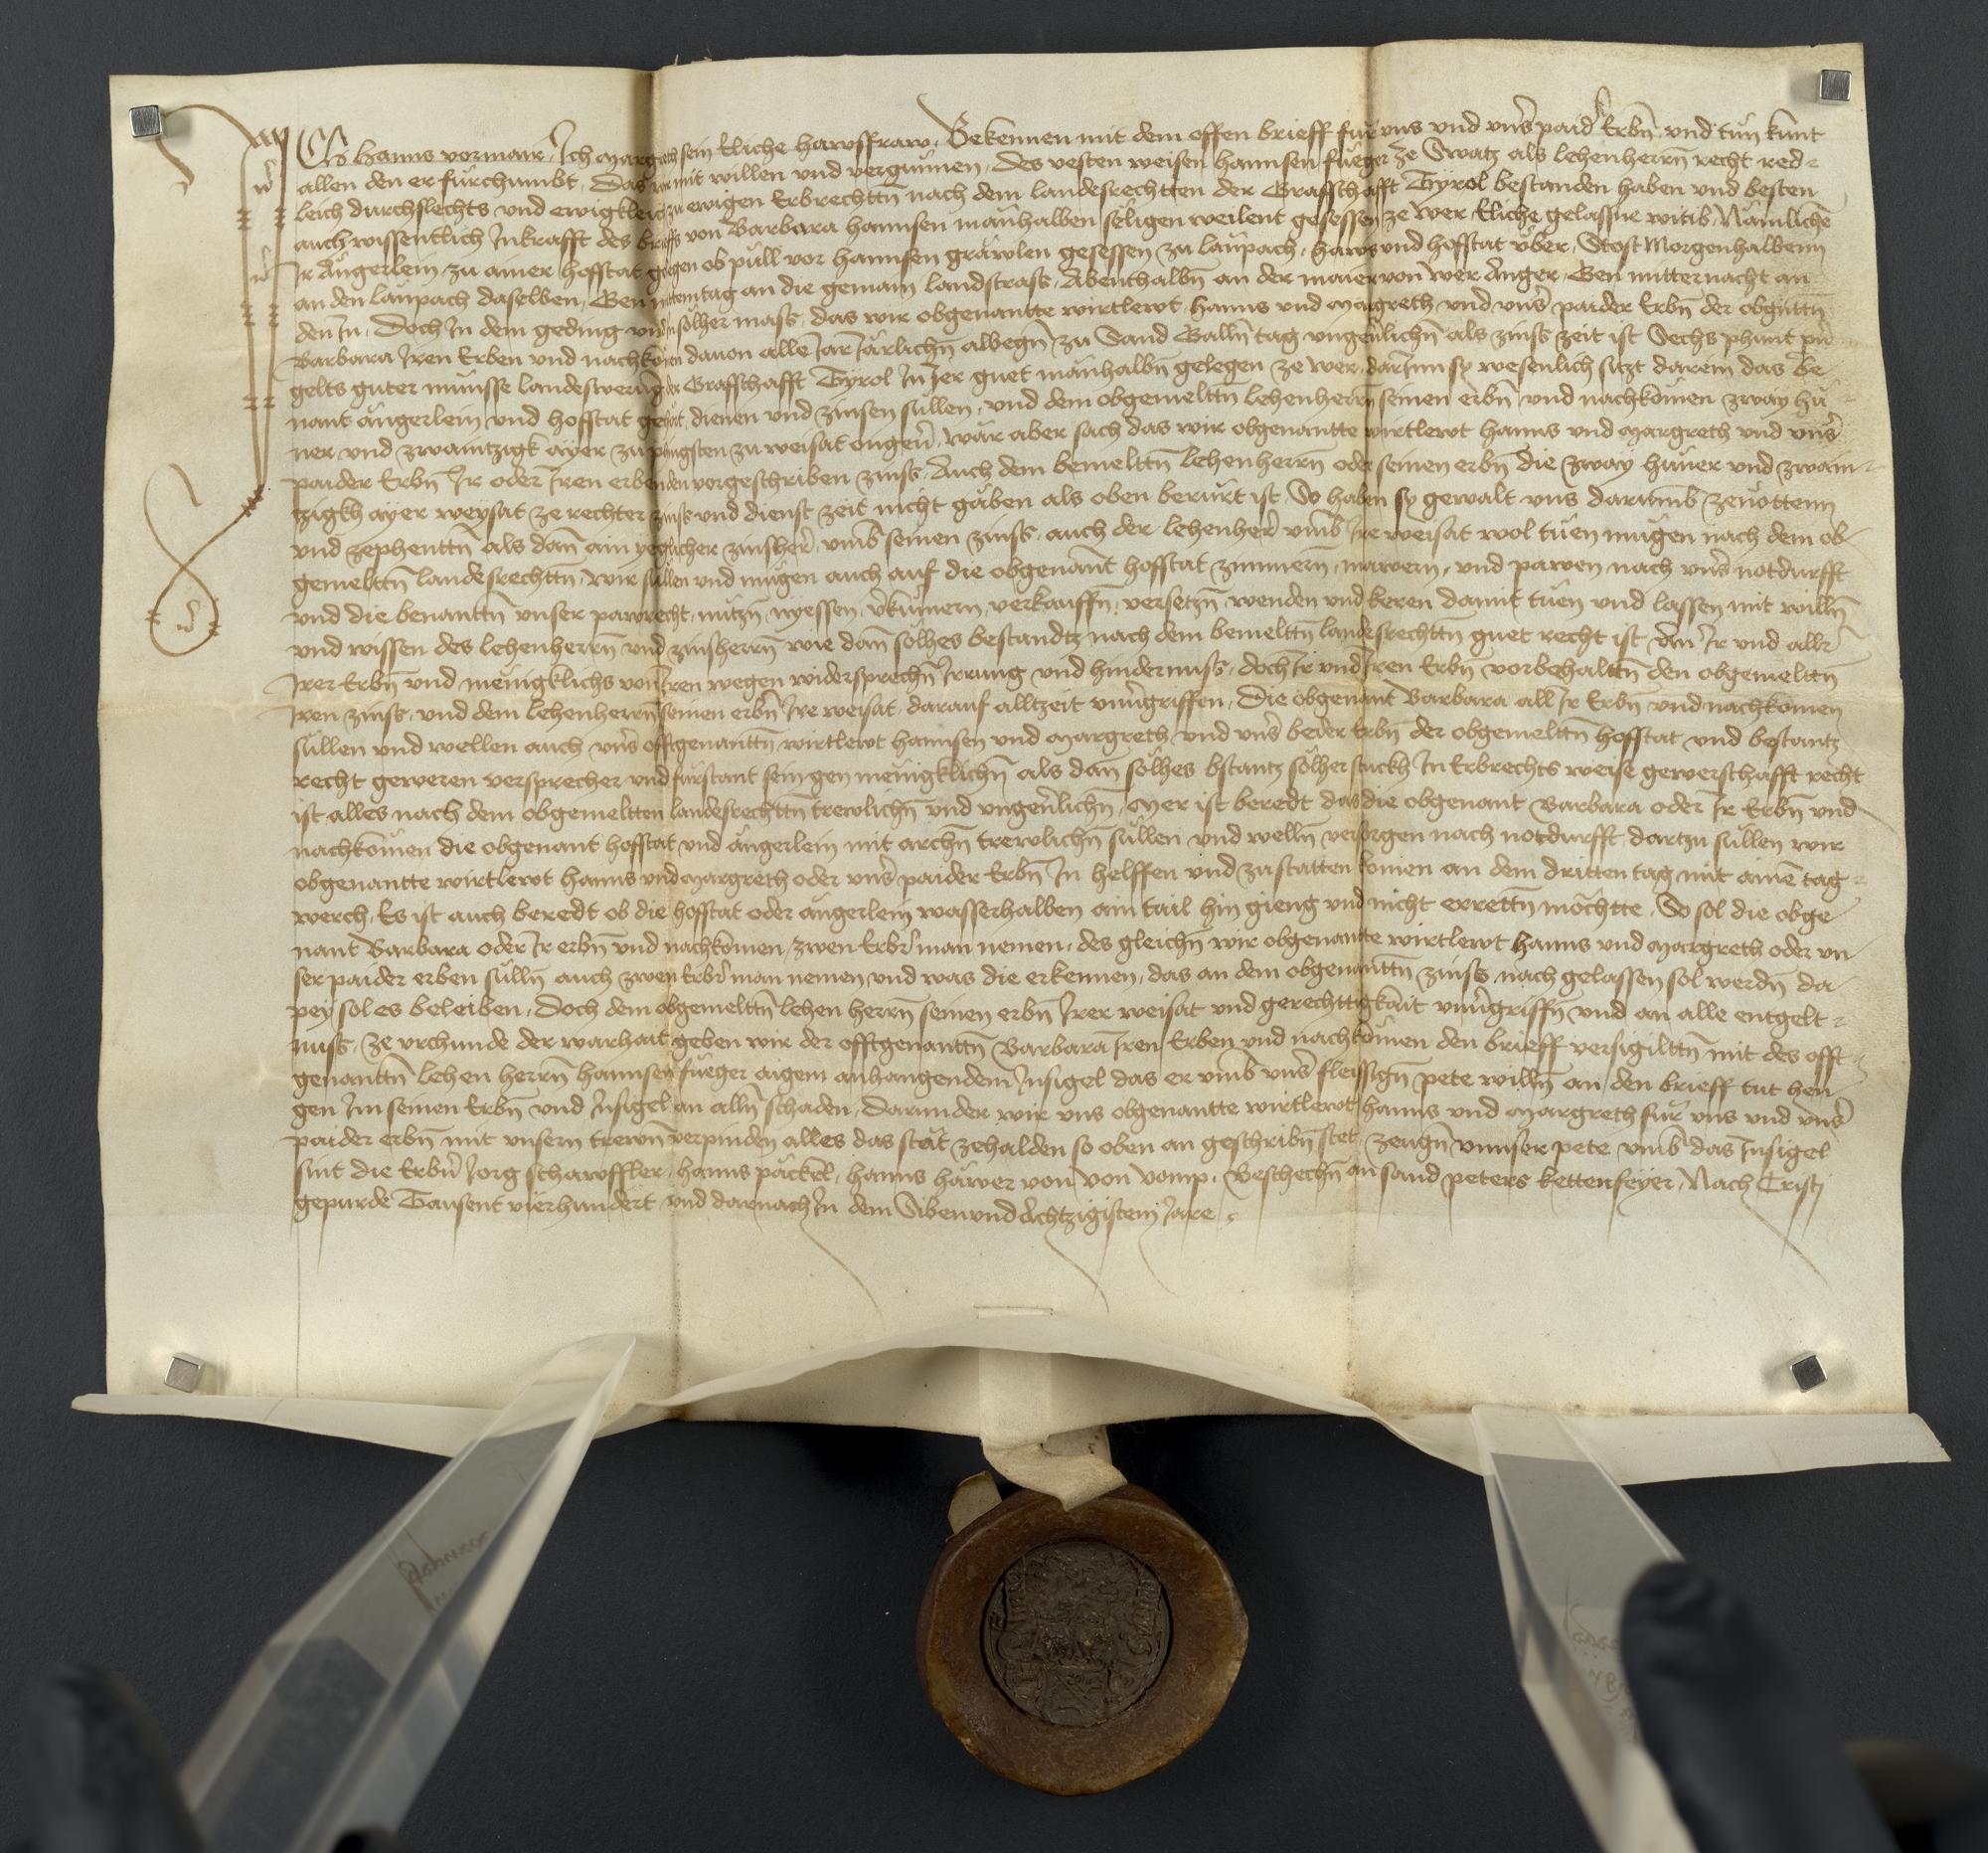 Ich Hanns vormair, Ich Margreth sein Eliche hawsfraw, Bekennen mit dem offen brieff fur vns vnd vnser paider Erbn̄ vnd tun kunt
allen den er furchumbt, Das wir mit willen vnd vergunnen, des vesten weisen Hannsen fueger ze Swatz als lehenherrn̄ recht red-
leich durchslechts vnd ewigkleich zu ewigen Erbrechtn̄ nach dem landesrechtten der Graffschafft Tyrol bestanden haben vnd besten
auch wissentlich In krafft des brieffs von Barbara Hannsen manhalben säligen weilent gesessen ze wer Eliche gelassne witib, Nämlichen
Ir Ängerlein zu ainer hofstat gelegen ob püll vor Hannsen gräwlen gesessen zu laupach, haws vnd hofstat vber, Stost Morgenhalbenn
an den laupach daselben, Gen mittemtag an die gemain landstrass, Abenthalbn̄ an der maier von wer Anger, Gen mitternacht an
den In, Doch In dem geding vnd In sölher mass, das wir obgenantte wirtlewt Hanns vnd Margreth vnd vnser paider Erbn̄ der obgntn̄
Barbara Iren Erben vnd nachkomen dauon alle Iar Iärlichn̄ albegn̄ zu Sand Galln̄ tag vngeuerlichn̄ als zinss zeit ist Sechs phunt pn̄
gelts guter munsse landeswerug der Graffschafft Tyrol In Ier guet manhalbn̄ gelegen ze wer, darInn sy wesenlich sitzt darein das be-
nant ängerlein vnd hofstat gehört, dienen vnd zinsen süllen, vnd dem obgemeltn̄ lehenherrn̄ seinen erbn̄ vnd nachkomen zway hü-
ner vnd zwaintzigk ayer zu phingsten zu weisat ongeuer, wär aber sach das wir obgenantte wirtlewt Hanns vnd Margreth vnd vnser
paider Erbn̄ Ir oder Iren erben den vorgeschriben zinss, Auch dem bemeltn̄ lehenherrn̄ oder seinen erbn̄ die zway hüner vnd zwain-
tzigkh ayer weysat ze rechter zinss vnd dienst zeit nicht gäben als oben berürt ist So haben sy gewalt vns darumb zenöttenn
vnd zephenttn̄ als dan̄ ain yeglicher zinsher, vmb seinen zinss, auch der lehenher vmb Ire weisat wol tuen mugen nach dem ob-
gemelttn̄ landesrechttn̄, wir süllen vnd mugen auch auf die obgenant hofstat zimmern̄, mawern, vnd pawen nach vnser notdurfft
vnd die benanttn̄ vnser pawrecht, nutzn̄, nyessen, verkumern, verkauffn̄, versetzn̄, wenden vnd keren damit tuen vnd lassen mit willn̄
vnd wissen des lehenherrn̄ vnd zinsherrn̄ wie dan̄ sölhes bestandtz nach dem bemelttn̄ landesrechttn̄ guet recht ist von Ir vnd aller
Irer Erbn̄ vnd menigklichs von Iren wegen widersprechn̄ Irrung vnd hindernuss, doch Ir vnd Iren Erbn̄ vorbehalttn̄ den obgemelttn̄
Iren zinss, vnd dem lehenherrn̄ seinen erbn̄ Ire weisat, darauf alltzeit vnuergriffen, Die obgenant Barbara all Ir Erbn̄ vnd nachkomen
süllen vnd wellen auch vnser offtgenanttn̄ wirtlewt Hannsen vnd Margreth vnd vnser beder Erbn̄ der obgemelttn̄ hofstat vnd bestantz
recht geweren versprecher vnd fürstant sein gen menigklichn̄ als dan̄ sölhes bstantz sölher stuckh In Erbrechts weise gewerschafft recht
ist alles nach dem obgemeltten landesrechttn̄ trewlichn̄ vnd vngeuerlichn̄, Mer ist beredt das die obgenant Barbara oder Ir Erbn̄ vnd
nachkomen die obgenant hofstat vnd ängerlein mit archn̄ trewlichn̄ süllen vnd welln̄ versorgen nach notdurfft, dartzu süllen wir
obgenantte wirtlewt Hanns vnd Margreth oder vnser paider Erbn̄ In helffen vnd zustatten komen an dem dritten tag mit ainē tag-
werch, Es ist auch beredt ob die hofstat oder ängerlein wasserhalben ain tail hin gieng vnd nicht errettn̄ möchtte, So sol die obge-
nant Barbara oder Ir erbn̄ vnd nachkomen, zwen Erber man nemen, des gleichn̄ wir obgenantte wirtlewt Hanns vnd Margreth oder vn-
ser paider erben sülln̄ auch zwen Erber man nemen vnd was die erkennen, das an dem obgenanttn̄ zinss nach gelassen sol werdn̄ da-
pey sol es beleiben, Doch dem obgemelttn̄ lehen herrn̄ seinen erbn̄ Irer weisat vnd gerechttigkait vnuergriffn̄ vnd an alle entgelt-
nuss, Ze vrchunde der warhait geben wir der offtgenanttn̄ Barbara Iren Erben vnd nachkomen den brieff versigilttn̄ mit des offt-
genanttn̄ lehen herrn̄ Hannsen fueger aigem anhangendem Insigel das er vmb vnser fleissign̄ pete willn̄ an den brieff tut hen-
gen Im seinen Erbn̄ vnd Insigel an alln̄ schaden, Darunder wir vns obgenantte wirtlewt Hanns vnd Margreth für vns vnd vnser
paider erbn̄ mit vnsern trewn̄ verpinden alles das stät zehalden so oben an geschribn̄ stet, zeugn̄ vnnser pete vmb das Insigel
sint die Erbn̄ Iorg scharffler, Hanns päckel, Hanns härber von von vomp, Beschechn̄ an sand peters kettenfeyer, Nach Cristi
gepurde Tausent vierhundert vnd darnach In dem Sibenvndachtzigisten Iare